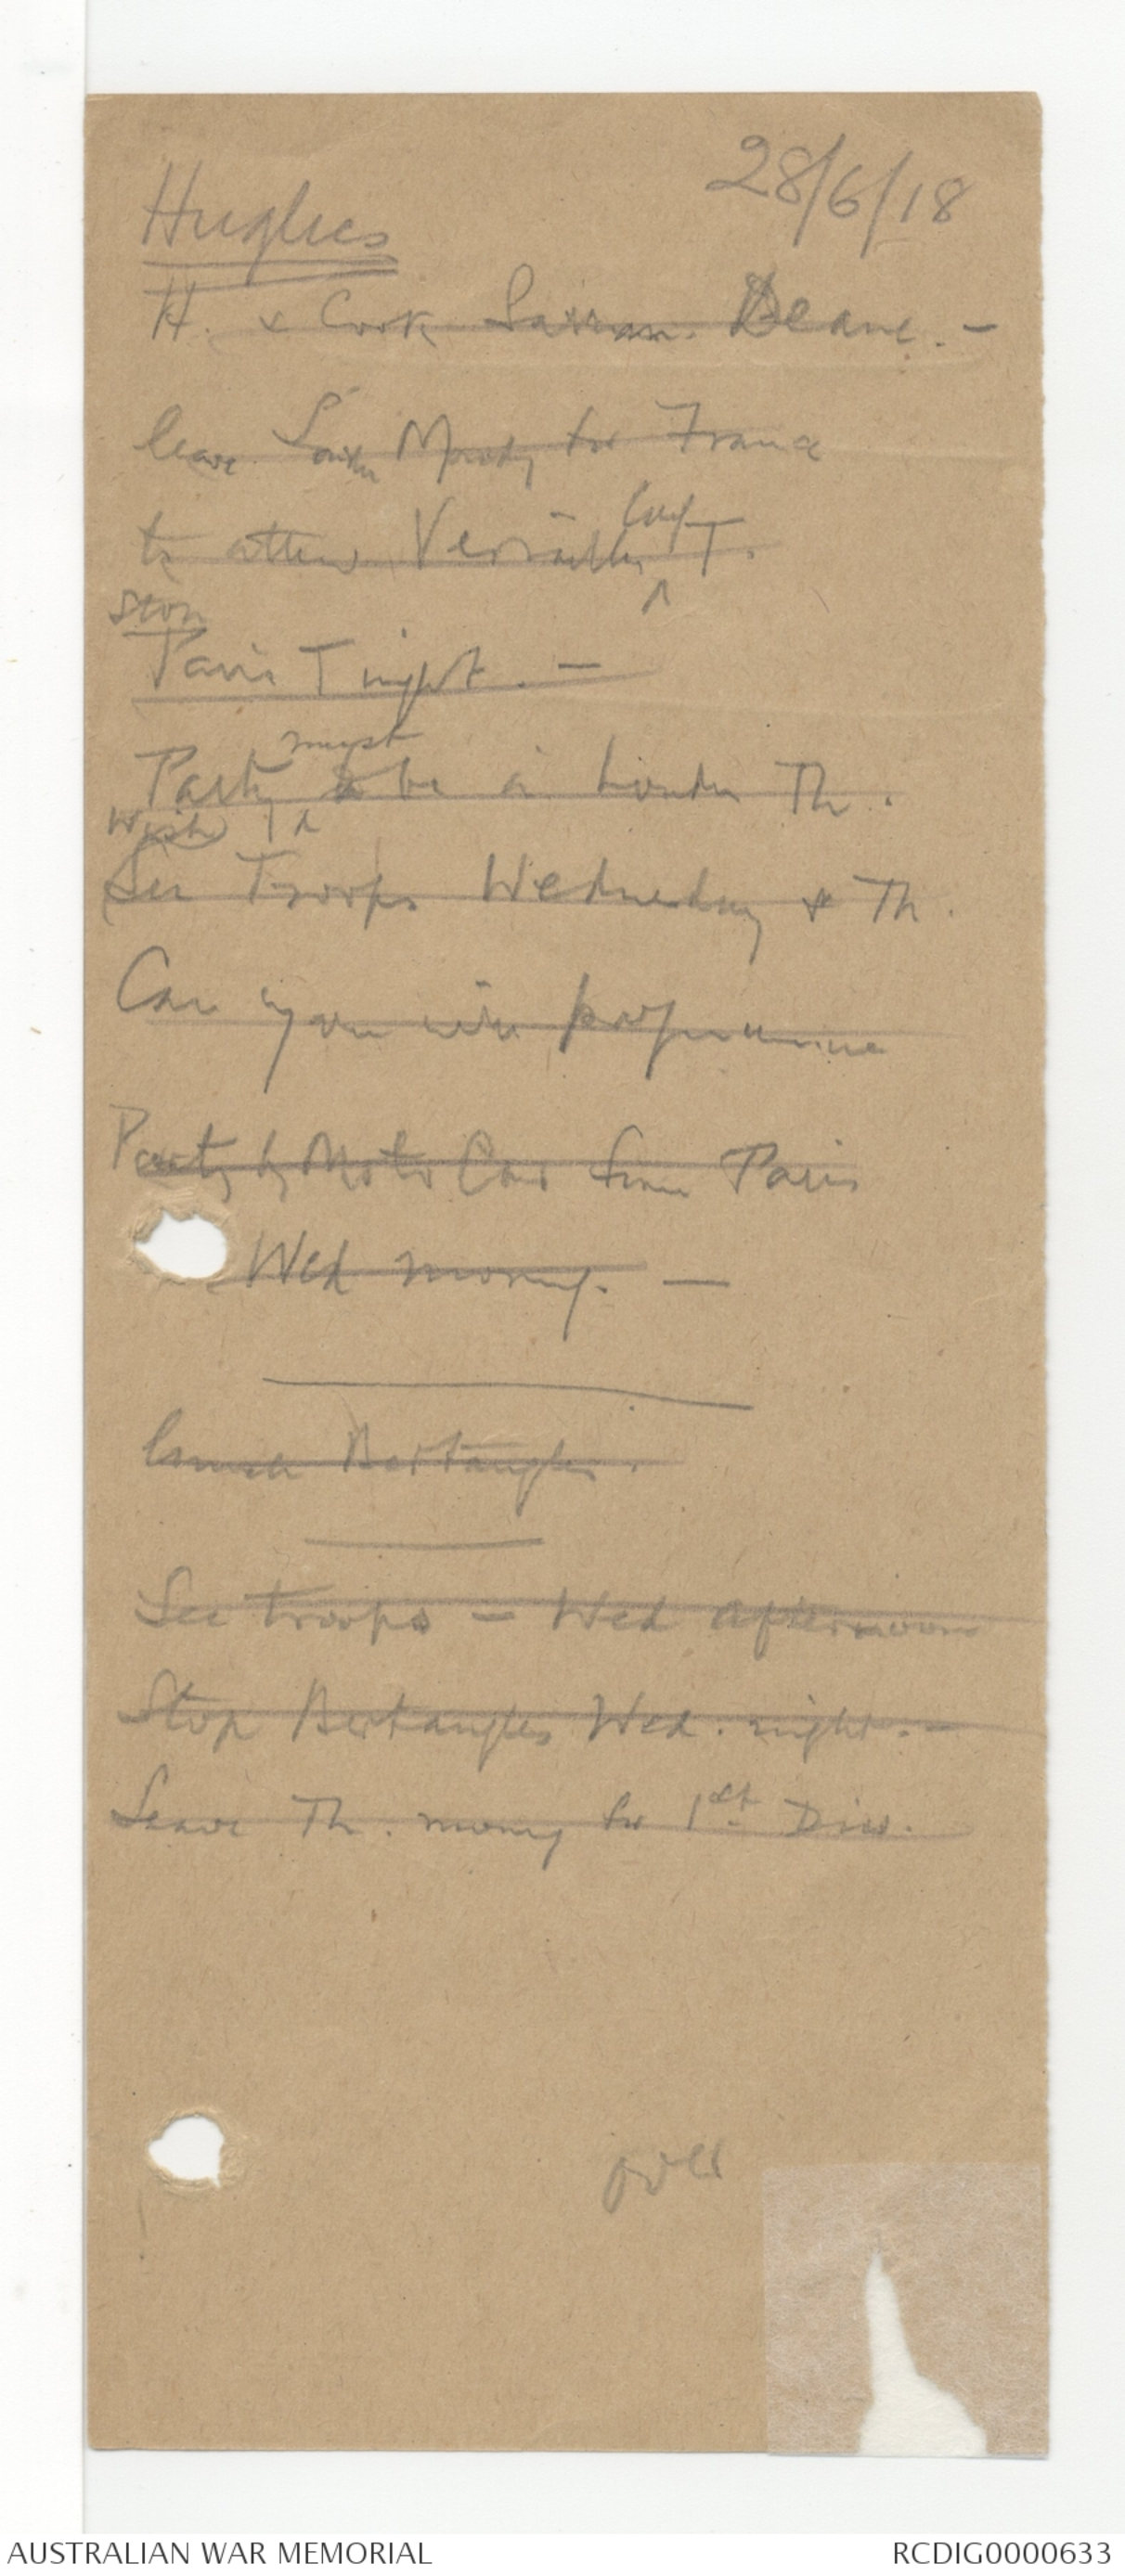 28/6/18
Hughes
H. & Cook Deane. -
leave London Monday for France
to attend Versailles Conf T.
Stop
Paris T night. -
Party must be in London Th.
Wish
See Troops Wednesday & Th.
Can you wire programme
Party by Motor Car from Paris
Wed morng. -
Lunch Bertangles.
See troops - Wed afternoon
Stop Bertangles Wed. night. -
Leave Th. morng for 1st Div.
over
AUSTRALIAN WAR MEMORIAL
RCDIG0000633